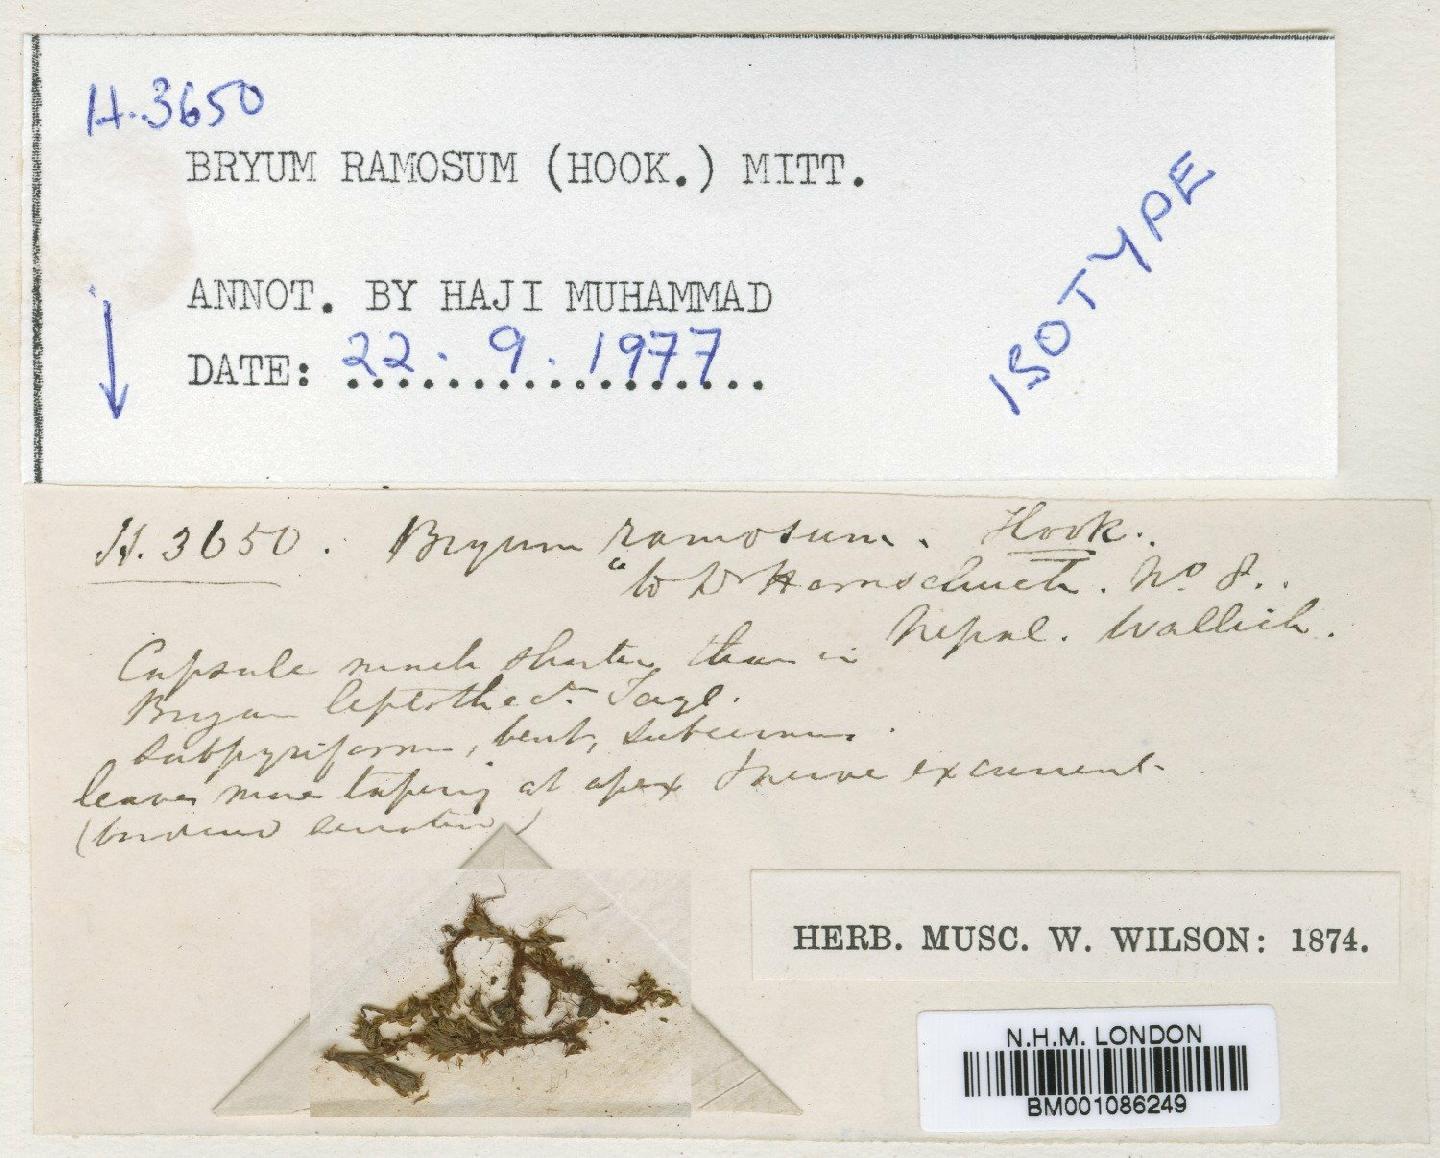 H.3650
BRYUM RAMOSUM (HOOK.) MITT.
ISOTYPE
ANNOT. BY HAJI MUHAMMAD
DATE: 22.9.1977
H.3650. Bryum ramosum. Hook.
"to Dr Hornschuch. No 8..
Nepal. Wallich.
Capsule much shorter than in
Bryum leptothec. Tayl.
subpyriform, bent,
leaves more tapering at apex & nerve excurrent
HERB. MUSC. W. WILSON: 1874.
N.H.M. LONDON
BM001086249